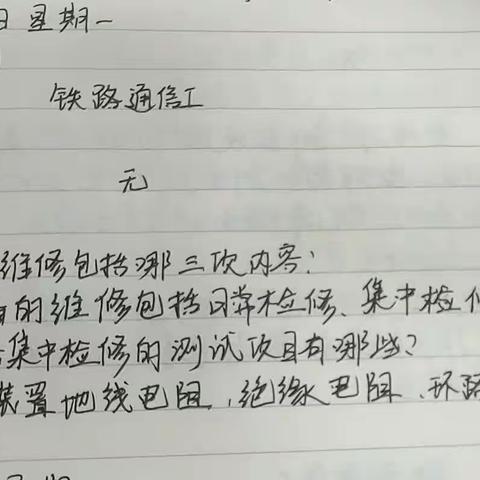 日 星期一
铁路通信工
无
维修包括哪三项内容:
的维修包括日常检修、集中检修
集中检修的测试项目有哪些?
装置地线电阻、绝缘电阻、环路